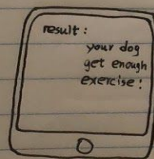 result:
your dog
get enough
exercise!